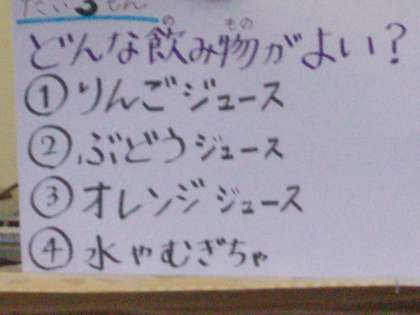 だい3もん
どんな飲み物がよい?
①りんごジュース
②ぶどうジュース
③オレンジジュース
④水やむぎちゃ